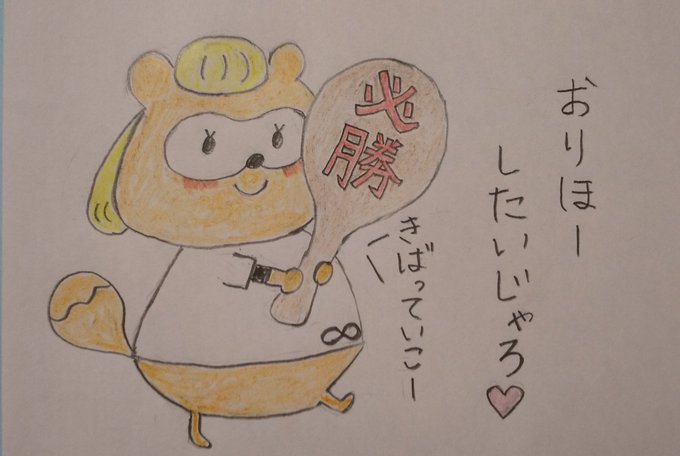 おりほー
したいじゃろ♥
必勝
きばっていこー
∞